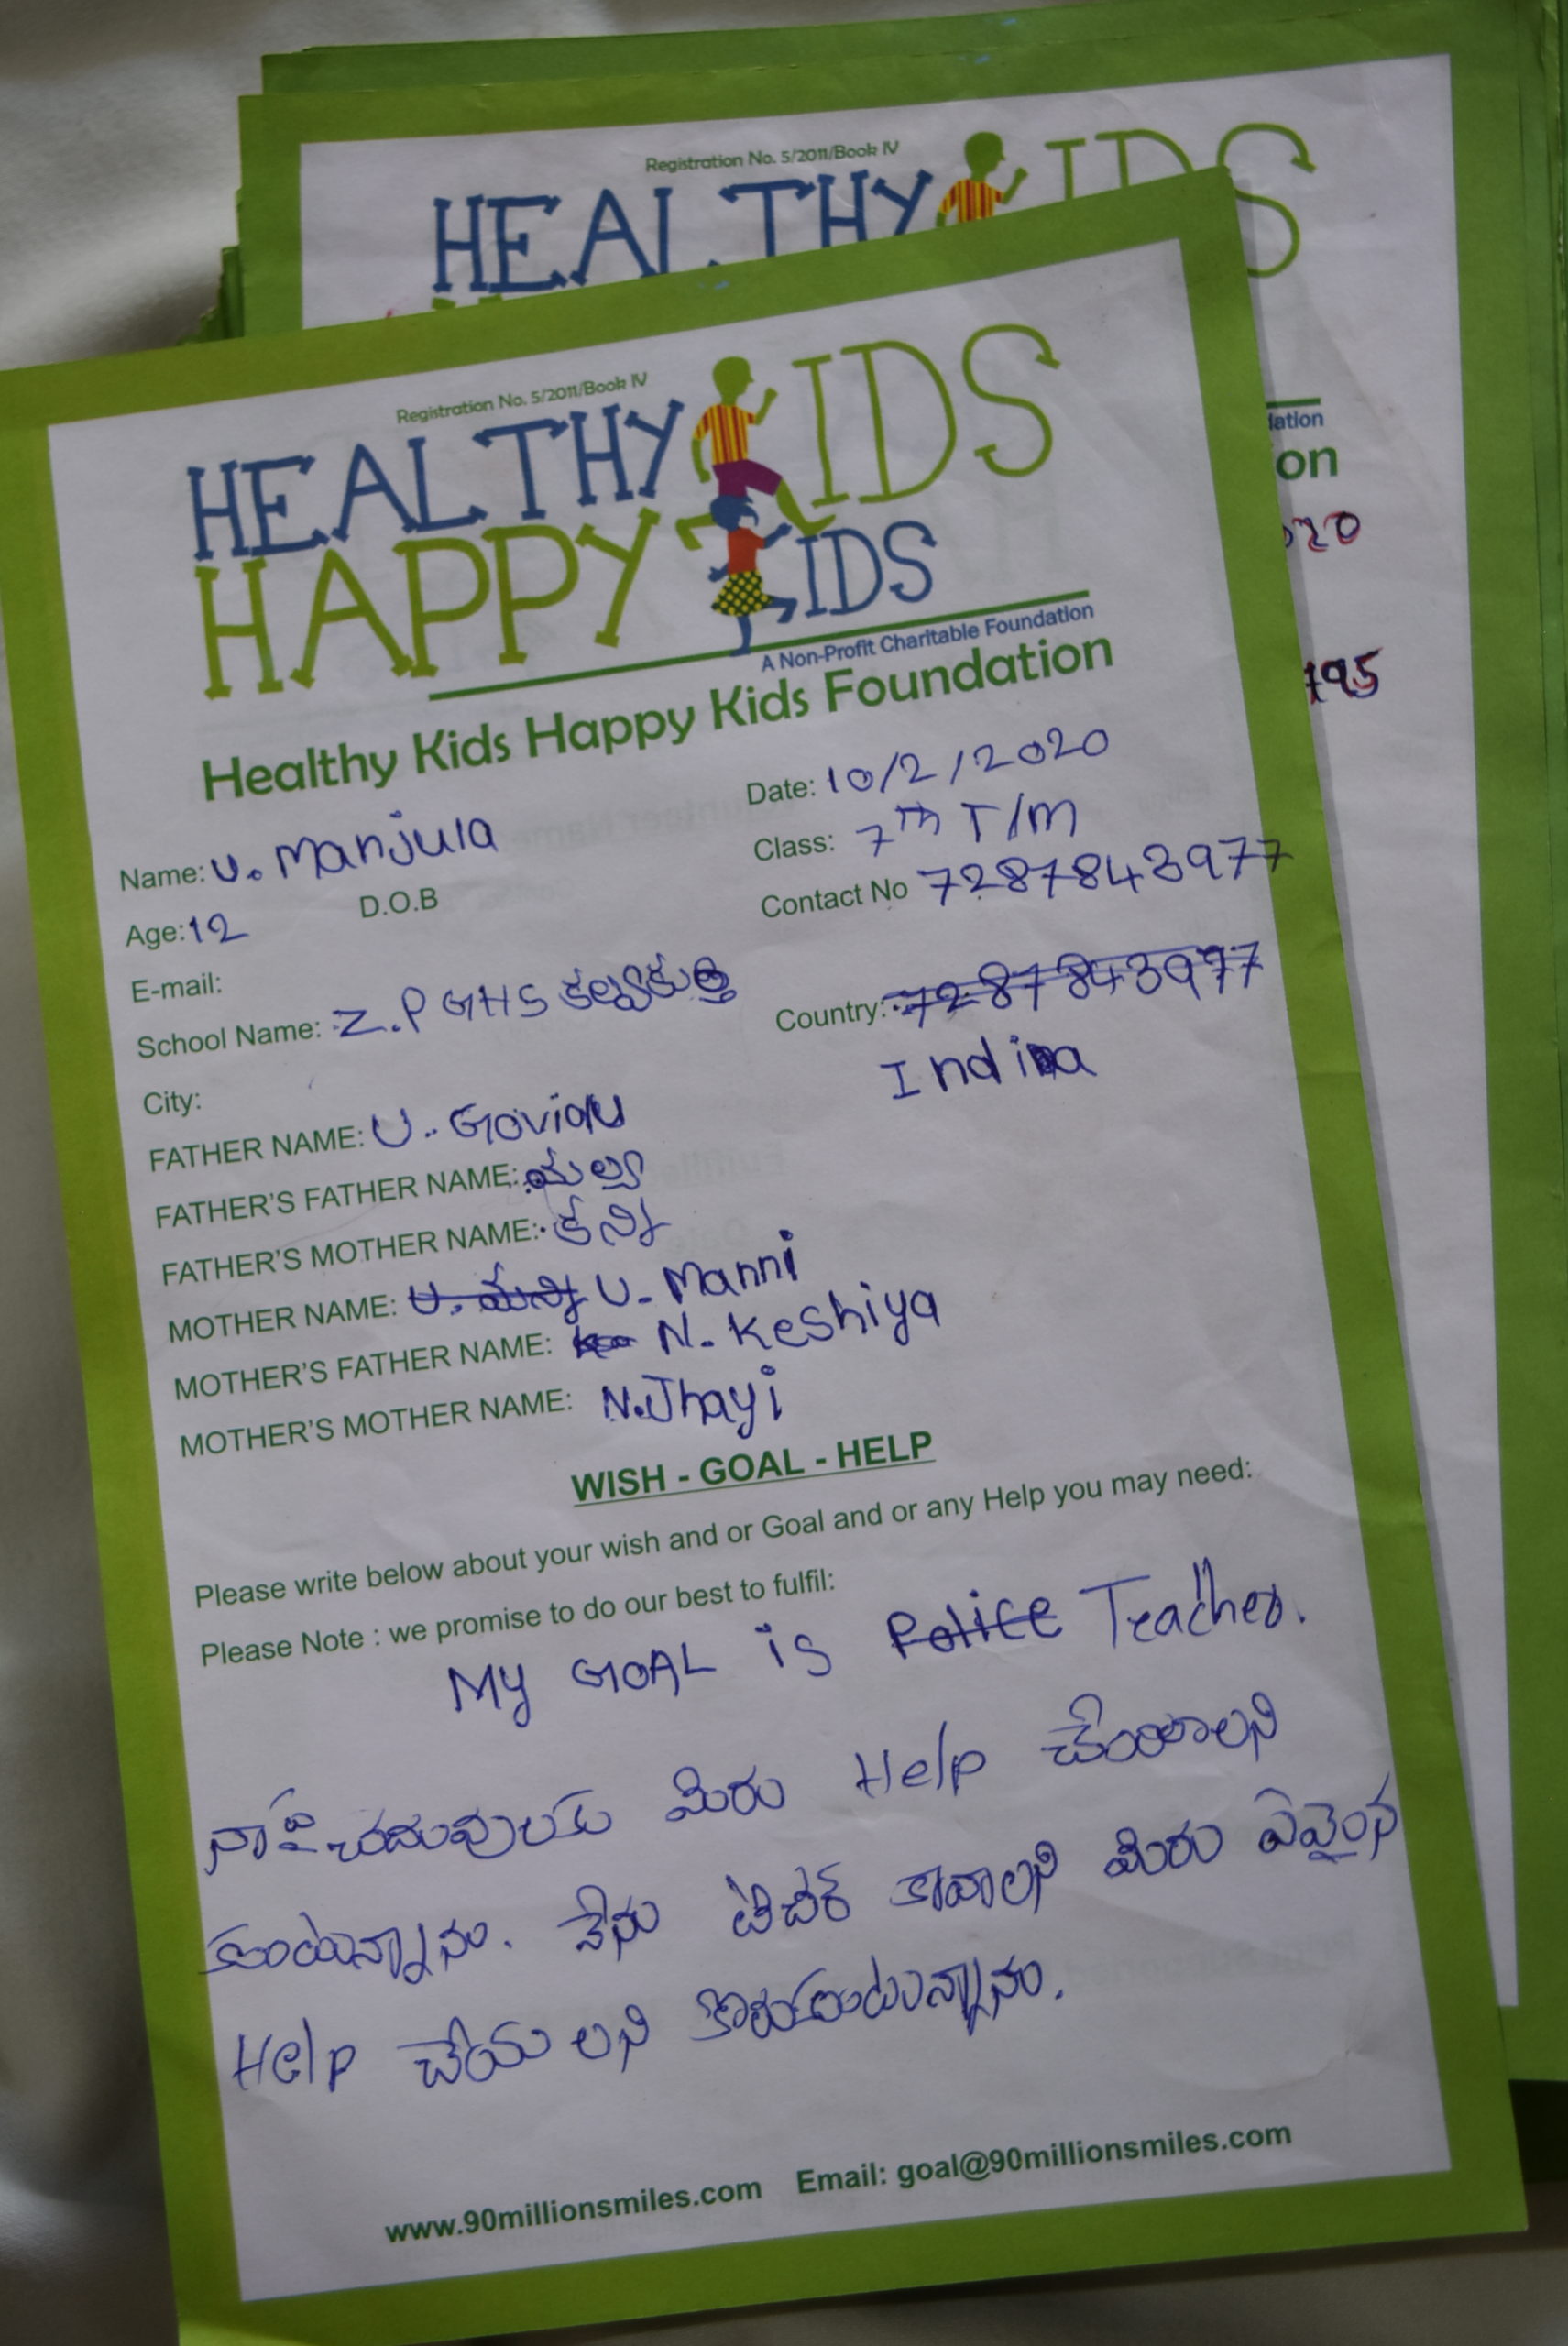 Registration No. 5/2011/Book IV
HEALTHY KIDS
lation
on
020
795
Registration No. 5/2011/Book IV
HEALTHY KIDS
HAPPY KIDS
A Non-Profit Charitable Foundation
Healthy Kids Happy Kids Foundation
Name: U. Manjula Date: 10/2/2020
Age: 12 D.O.B Class: 7th T/M
E-mail: Contact No 7287843977
School Name: Z.P GHS కల్వకుర్తి Country: 7287843977
India
City:
FATHER NAME: U. Govidu
FATHER'S FATHER NAME: మల్యా
FATHER'S MOTHER NAME: కన్ని
MOTHER NAME: U. మన్ని U. Manni
MOTHER'S FATHER NAME: N. Keshiya
MOTHER'S MOTHER NAME: N. Jhayi
WISH - GOAL - HELP
Please write below about your wish and or Goal and or any Help you may need:
Please Note : we promise to do our best to fulfil:
My GOAL is Police Teacher.
నా పై చదువులకు మీరు Help చేయాలని
కుంటున్నాను. నేను టీచర్ కావాలని మీరు ఏవైంన
Help చేయాలని కొరుకుంటున్నాను.
www.90millionsmiles.com Email: goal@90millionsmiles.com